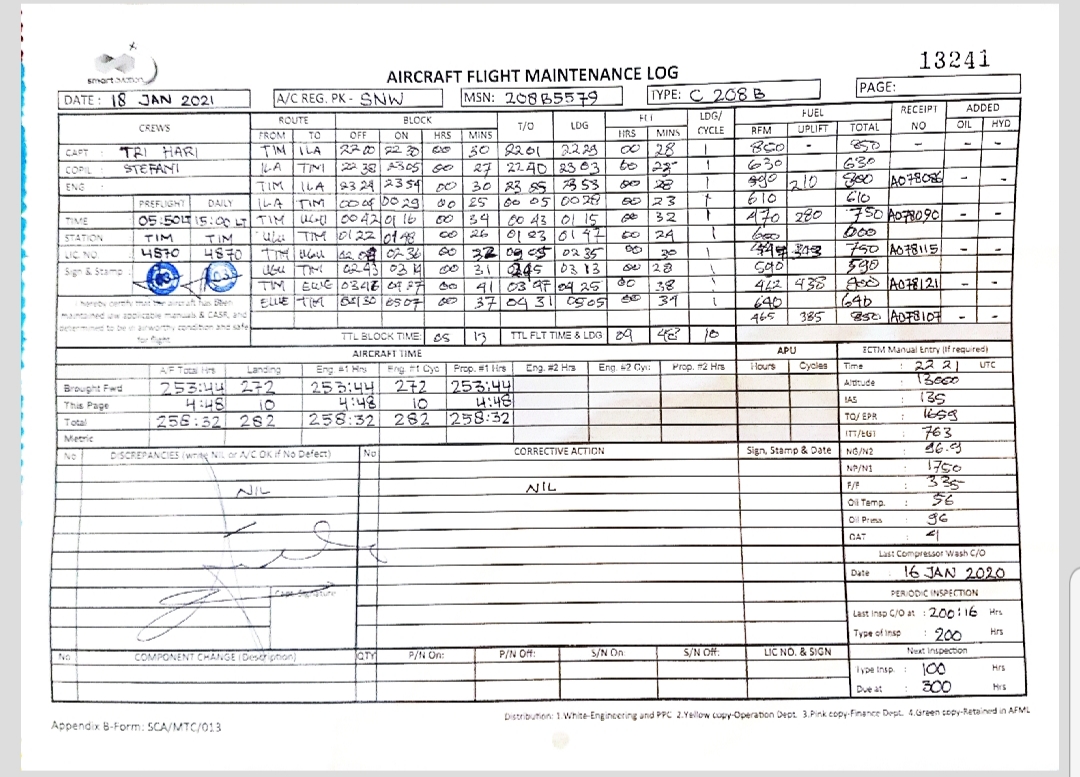 smart aviation
13241
AIRCRAFT FLIGHT MAINTENANCE LOG
DATE : 18 JAN 2021 A/C REG. PK - SNW MSN: 208B5579 TYPE: C 208 B PAGE:
CREWS ROUTE BLOCK T/O LDG FLT LDG/ CYCLE FUEL RECEIPT NO ADDED
FROM TO OFF ON HRS MINS HRS MINS RFM UPLIFT TOTAL OIL HYD
CAPT : TRI HARI TIM ILA 2200 2230 00 30 2201 2229 00 28 1 850 - 850 - - -
COPIL : STEFANI ILA TIM 2238 2305 00 27 2240 2303 00 23 1 630 630
ENG : TIM ILA 2324 2354 00 30 2353 00 28 1 210 800 A078086 - -
PREFLIGHT DAILY ILA TIM 0004 0029 00 25 00 05 0028 00 23 1 610 610
TIME 05:50LT 15:00 LT TIM UGU 0042 0116 00 34 00 43 01 15 00 32 1 470 280 750 A078090 - -
STATION TIM TIM UGU TIM 0122 0148 00 26 0123 0147 00 24 1 600 600
LIC. NO. 4870 4870 TIM UGU 0236 00 32 0235 00 30 750 A078115 - -
Sign & Stamp : UGU TIM 0243 0314 00 31 0245 0313 00 28 1 590 590
TIM ELUE 0346 0427 00 41 0347 0425 00 38 1 462 438 900 A078121 - -
I hereby certify that the aircraft has been ELUE TIM 0430 0507 00 37 0431 0505 00 34 1 640 640
maintained iaw applicable manuals & CASR, and
determined to be in airworthy condition and safe 465 385 850 A078107 - -
for flight. TTL BLOCK TIME: 05 13 TTL FLT TIME & LDG 04 48 10
AIRCRAFT TIME APU ECTM Manual Entry (If required)
A/F Total Hrs Landing Eng #1 Hrs Eng. #1 Cyc Prop. #1 Hrs Eng. #2 Hrs Eng. #2 Cyc Prop. #2 Hrs Hours Cycles Time : 22 21 UTC
Brought Fwd 253:44 272 253:44 272 253:44 Altitude : 13000
This Page 4:48 10 4:48 10 4:48 IAS : 135
Total 258:32 282 258:32 282 258:32 TQ/ EPR : 1659
Metric ITT/EGT : 763
No DISCREPANCIES (write NIL or A/C OK if No Defect) No CORRECTIVE ACTION Sign, Stamp & Date NG/N2 : 96.9
NP/N1 1750
NIL NIL F/F : 335
Oil Temp. : 56
Oil Press : 96
OAT :
Last Compressor Wash C/O
Date : 16 JAN 2020
Capt. Signature
PERIODIC INSPECTION
Last Insp C/O at : 200:16 Hrs
Type of Insp : 200 Hrs
No COMPONENT CHANGE (Description) QTY P/N On: P/N Off: S/N On: S/N Off: LIC NO. & SIGN Next Inspection
Type Insp. : 100 Hrs
Due at : 300 Hrs
Distribution: 1.White-Engineering and PPC 2.Yellow copy-Operation Dept. 3.Pink copy-Finance Dept. 4.Green copy-Retained in AFML
Appendix B-Form: SCA/MTC/013